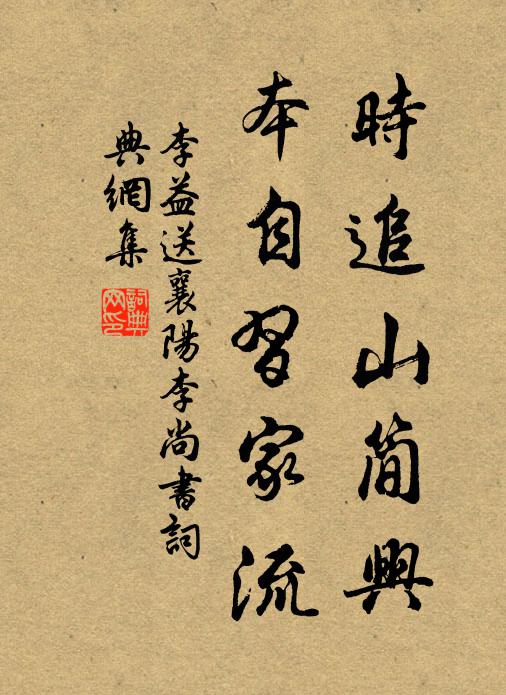 時追山簡興
本自習家流
李益送襄陽李尚書詞
典網集
詞典
网印